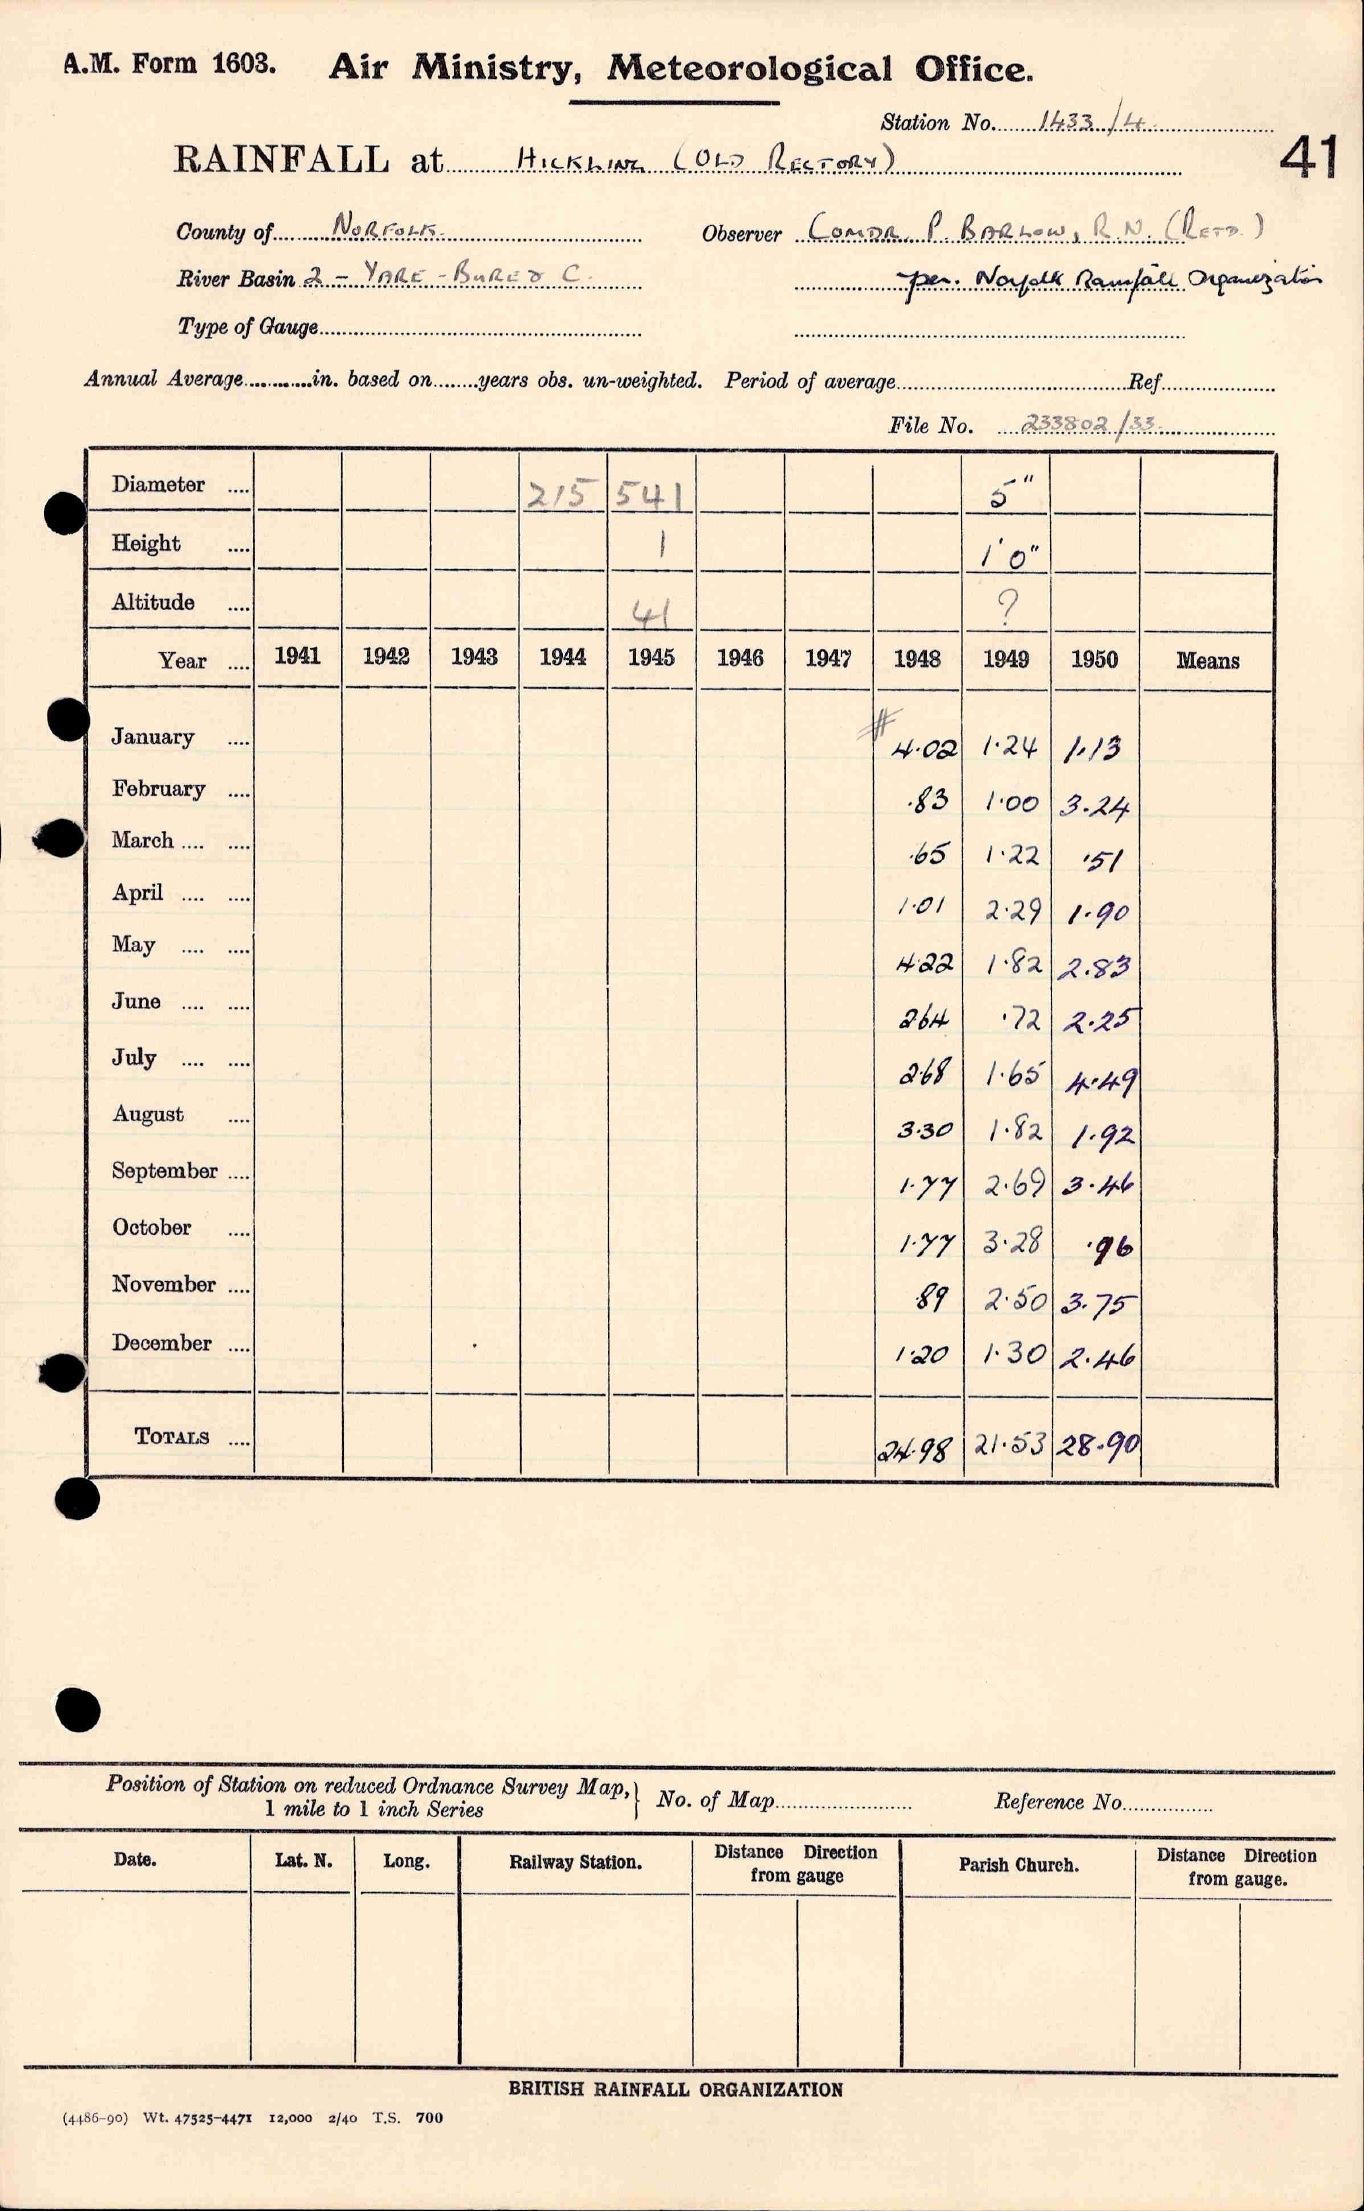 A.M. Form 1603. Air Ministry, Meteorological Office.
Station No. 1433/4
41
RAINFALL at HICKLING (OLD RECTORY)
County of NORFOLK. Observer COMDR. P. BARLOW, R.N. (RETD.)
River Basin 2 - YARE - BURE & C. per. Norfolk Rainfall Organization
Type of Gauge
Annual Average............in. based on........years obs. un-weighted. Period of average Ref.
File No. 233802/33
Diameter .... 215 541 5"
Height .... 1 1'0"
Altitude .... 41 ?
Year .... 1941 1942 1943 1944 1945 1946 1947 1948 1949 1950 Means
#
January .... 4.02 1.24 1.13
February .... .83 1.00 3.24
March .... .... .65 1.22 .51
April .... .... 1.01 2.29 1.90
May .... .... 4.22 1.82 2.83
June .... .... 2.64 .72 2.25
July .... .... 2.68 1.65 4.49
August .... 3.30 1.82 1.92
September .... 1.77 2.69 3.46
October .... 1.77 3.28 .96
November .... .89 2.50 3.75
December .... 1.20 1.30 2.46
TOTALS .... 24.98 21.53 28.90
Position of Station on reduced Ordnance Survey Map, } No. of Map Reference No.
1 mile to 1 inch Series
Date. Lat. N. Long. Railway Station. Distance Direction from gauge Parish Church. Distance Direction from gauge.
BRITISH RAINFALL ORGANIZATION
(4486-90) Wt. 47525-4471 12,000 2/40 T.S. 700